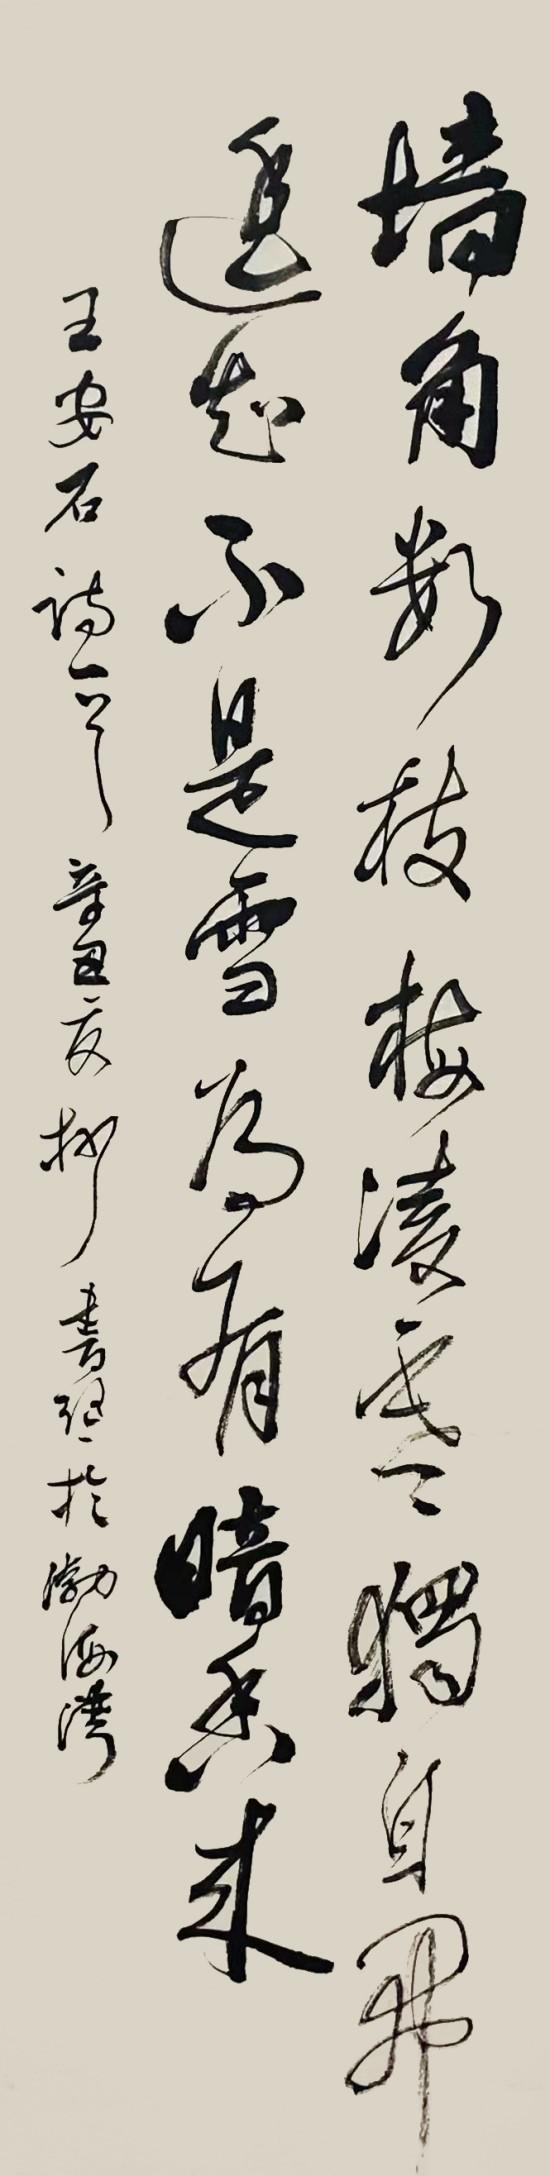 墙角数枝梅凌寒独自開
遥知不是雪为有暗香来
王安石詩一首 辛丑夏 柳書 於渤海湾